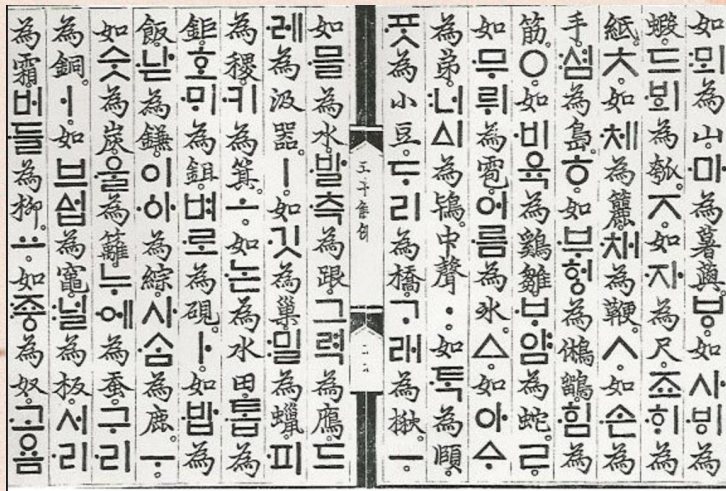 如:뫼為山。·마為薯藇。ㅸ。如사·ᄫᅵ為
蝦。드·ᄫᅴ為瓠。ㅈ。如·자為尺。죠·ᄒᆡ為
紙。ㅊ。如·체為籭。·채為鞭。ㅅ。如·손為
手。:셤為島。ㅎ。如·부허ᇰ為鵂鶹。·힘為
筋。ㅇ。如·비육為鷄雛。·ᄇᆞ얌為蛇。ㄹ。
如·무뤼為雹。어·름為氷。ㅿ。如아ᅀᆞ
為弟。:너ᅀᅵ為鴇。中聲ㆍ。如·ᄐᆞᆨ為頤。
·ᄑᆞᆺ為小豆。ᄃᆞ리為橋。·ᄀᆞ래為楸。ㅡ。
如·믈為水。·발·측為跟。그력為鴈。드
·레為汲器。ㅣ。如·깃為巢。:밀為蠟。·피
為稷。·키為箕。ㅗ。如·논為水田。·톱為
鉅。호·ᄆᆡ為鉏。벼·로為硯。ㅏ。如·밥為
飯。·낟為鎌。이·ᅌᅡ為綜。사·ᄉᆞᆷ為鹿。ㅜ。
如숫為炭。·울為籬。누·에為蚕。구·리
為銅。ㅓ。如브ᅀᅥᆸ為竈。:널為板。서·리
為霜。버·들為柳。ㅛ。如:죵為奴。·고욤